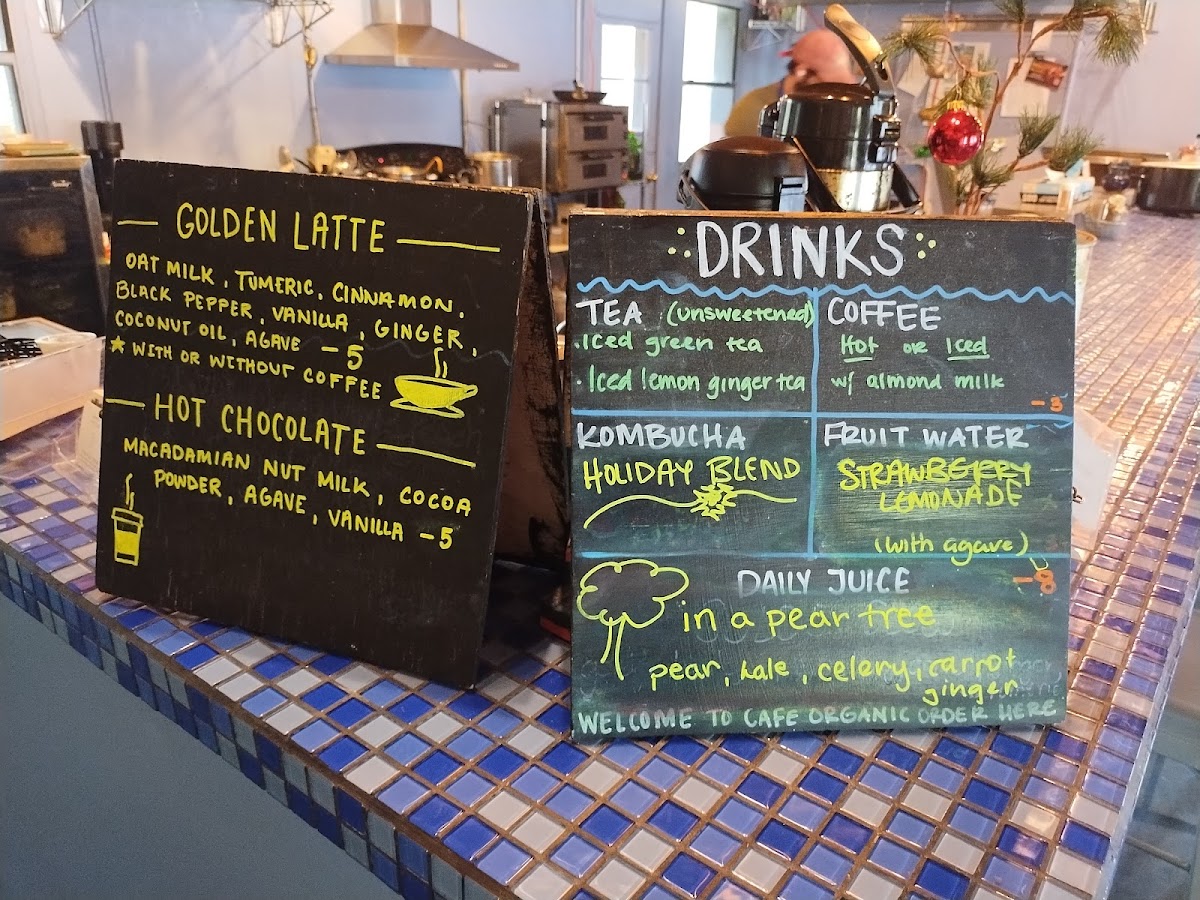 GOLDEN LATTE
OAT MILK, TUMERIC, CINNAMON,
BLACK PEPPER, VANILLA, GINGER,
COCONUT OIL, AGAVE -5
* WITH OR WITHOUT COFFEE
HOT CHOCOLATE
MACADAMIAN NUT MILK, COCOA
POWDER, AGAVE, VANILLA -5
DRINKS
TEA (unsweetened)
· Iced green tea
· Iced lemon ginger tea
COFFEE
Hot or Iced
w/ almond milk
-3
KOMBUCHA
HOLIDAY BLEND
FRUIT WATER
STRAWBERRY
LEMONADE
(with agave)
DAILY JUICE -8
in a pear tree
pear, kale, celery, carrot
ginger
WELCOME TO CAFE ORGANIC ORDER HERE